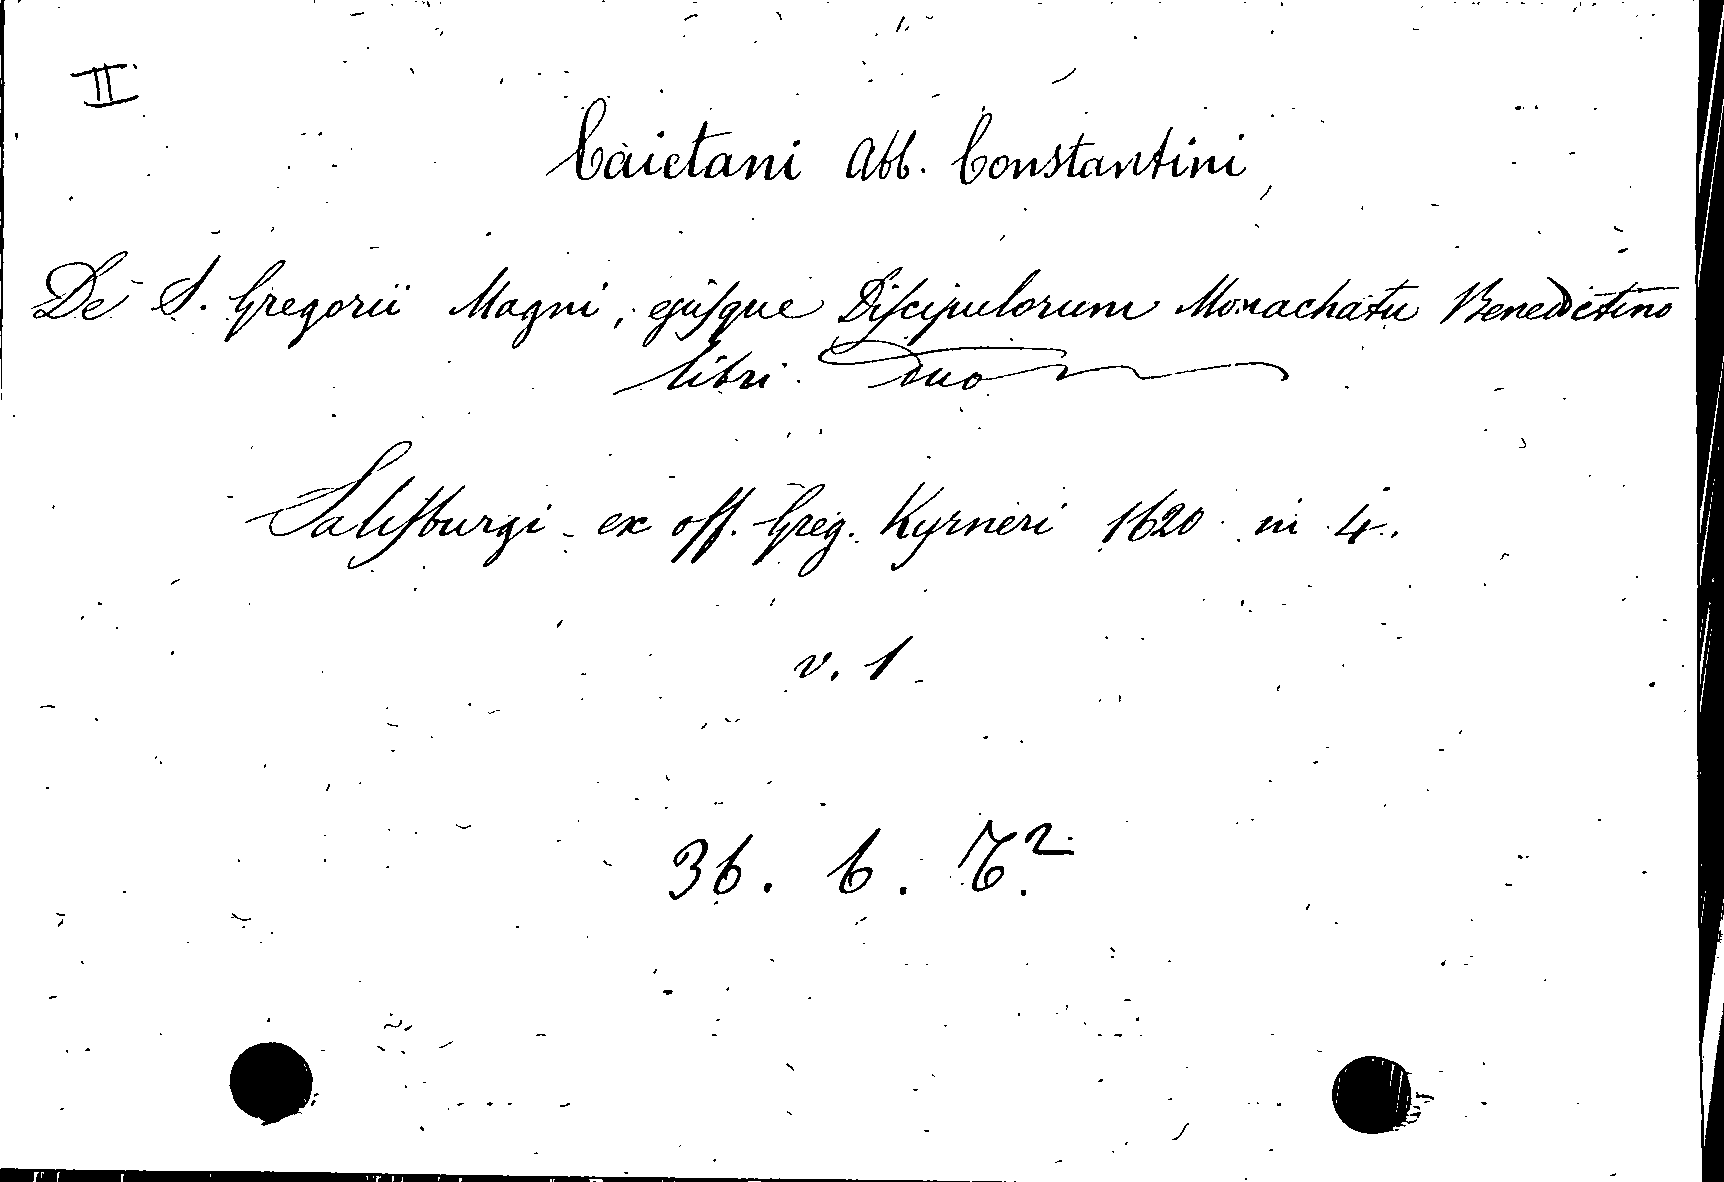 II
Caietani Abb. Constantini
De S. Gregorii Magni, ejusque Discipulorum Monachatu Benedictino
libri duo
Salisburgi ex off. Greg. Kyrneri 1620 in 4.
v. 1
36. 6. 76.²